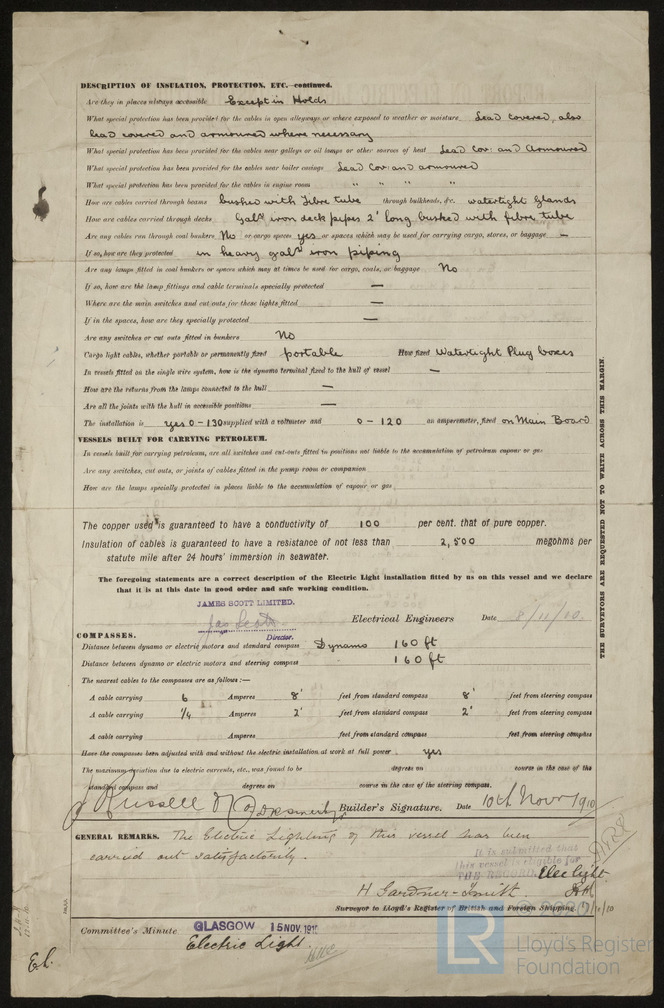 DESCRIPTION OF INSULATION, PROTECTION, ETC.—continued.
Are they in places always accessible Except in Holds
What special protection has been provided for the cables in open alleyways or where exposed to weather or moisture Lead Covered, also
lead covered and armoured where necessary
What special protection has been provided for the cables near galleys or oil lamps or other sources of heat Lead Cov: and Armoured
What special protection has been provided for the cables near boiler casings Lead Cov: and armoured
What special protection has been provided for the cables in engine room " " " "
How are cables carried through beams bushed with Fibre tube through bulkheads, &c. watertight Glands
How are cables carried through decks Galv iron deck pipes 2' long bushed with fibre tube
Are any cables run through coal bunkers No or cargo spaces yes or spaces which may be used for carrying cargo, stores, or baggage —
If so, how are they protected in heavy galv iron piping
Are any lamps fitted in coal bunkers or spaces which may at times be used for cargo, coals, or baggage No
If so, how are the lamp fittings and cable terminals specially protected —
Where are the main switches and cut outs for these lights fitted —
If in the spaces, how are they specially protected —
Are any switches or cut outs fitted in bunkers No
Cargo light cables, whether portable or permanently fixed portable How fixed Watertight Plug boxes
In vessels fitted on the single wire system, how is the dynamo terminal fixed to the hull of vessel —
How are the returns from the lamps connected to the hull —
Are all the joints with the hull in accessible positions —
The installation is yes 0-130 supplied with a voltmeter and 0-120 an amperometer, fixed on Main Board
VESSELS BUILT FOR CARRYING PETROLEUM.
In vessels built for carrying petroleum, are all switches and cut-outs fitted in positions not liable to the accumulation of petroleum vapour or gas
Are any switches, cut outs, or joints of cables fitted in the pump room or companion
How are the lamps specially protected in places liable to the accumulation of vapour or gas
The copper used is guaranteed to have a conductivity of 100 per cent. that of pure copper.
Insulation of cables is guaranteed to have a resistance of not less than 2,500 megohms per
statute mile after 24 hours' immersion in seawater.
The foregoing statements are a correct description of the Electric Light installation fitted by us on this vessel and we declare
that it is at this date in good order and safe working condition.
JAMES SCOTT LIMITED.
Jas Scott Electrical Engineers Date 8/11/10.
Director.
COMPASSES.
Distance between dynamo or electric motors and standard compass Dynamo 160 ft
Distance between dynamo or electric motors and steering compass 160 ft
The nearest cables to the compasses are as follows:—
A cable carrying 6 Amperes 8' feet from standard compass 8' feet from steering compass
A cable carrying 1/4 Amperes 2' feet from standard compass 2' feet from steering compass
A cable carrying Amperes feet from standard compass feet from steering compass
Have the compasses been adjusted with and without the electric installation at work at full power yes
The maximum deviation due to electric currents, etc., was found to be degrees on course in the case of the
standard compass and degrees on course in the case of the steering compass.
Russell & Co Builder's Signature. Date 10th Novr 1910
GENERAL REMARKS. The Electric Lighting of this vessel has been
carried out satisfactorily.
It is submitted that
this vessel is eligible for
THE RECORD Elec light
H Gardner-Smith
Surveyor to Lloyd's Register of British and Foreign Shipping.
Committee's Minute GLASGOW 15 NOV. 1910
Electric Light
THE SURVEYORS ARE REQUESTED NOT TO WRITE ACROSS THIS MARGIN.
LR
Lloyd's Register
Foundation